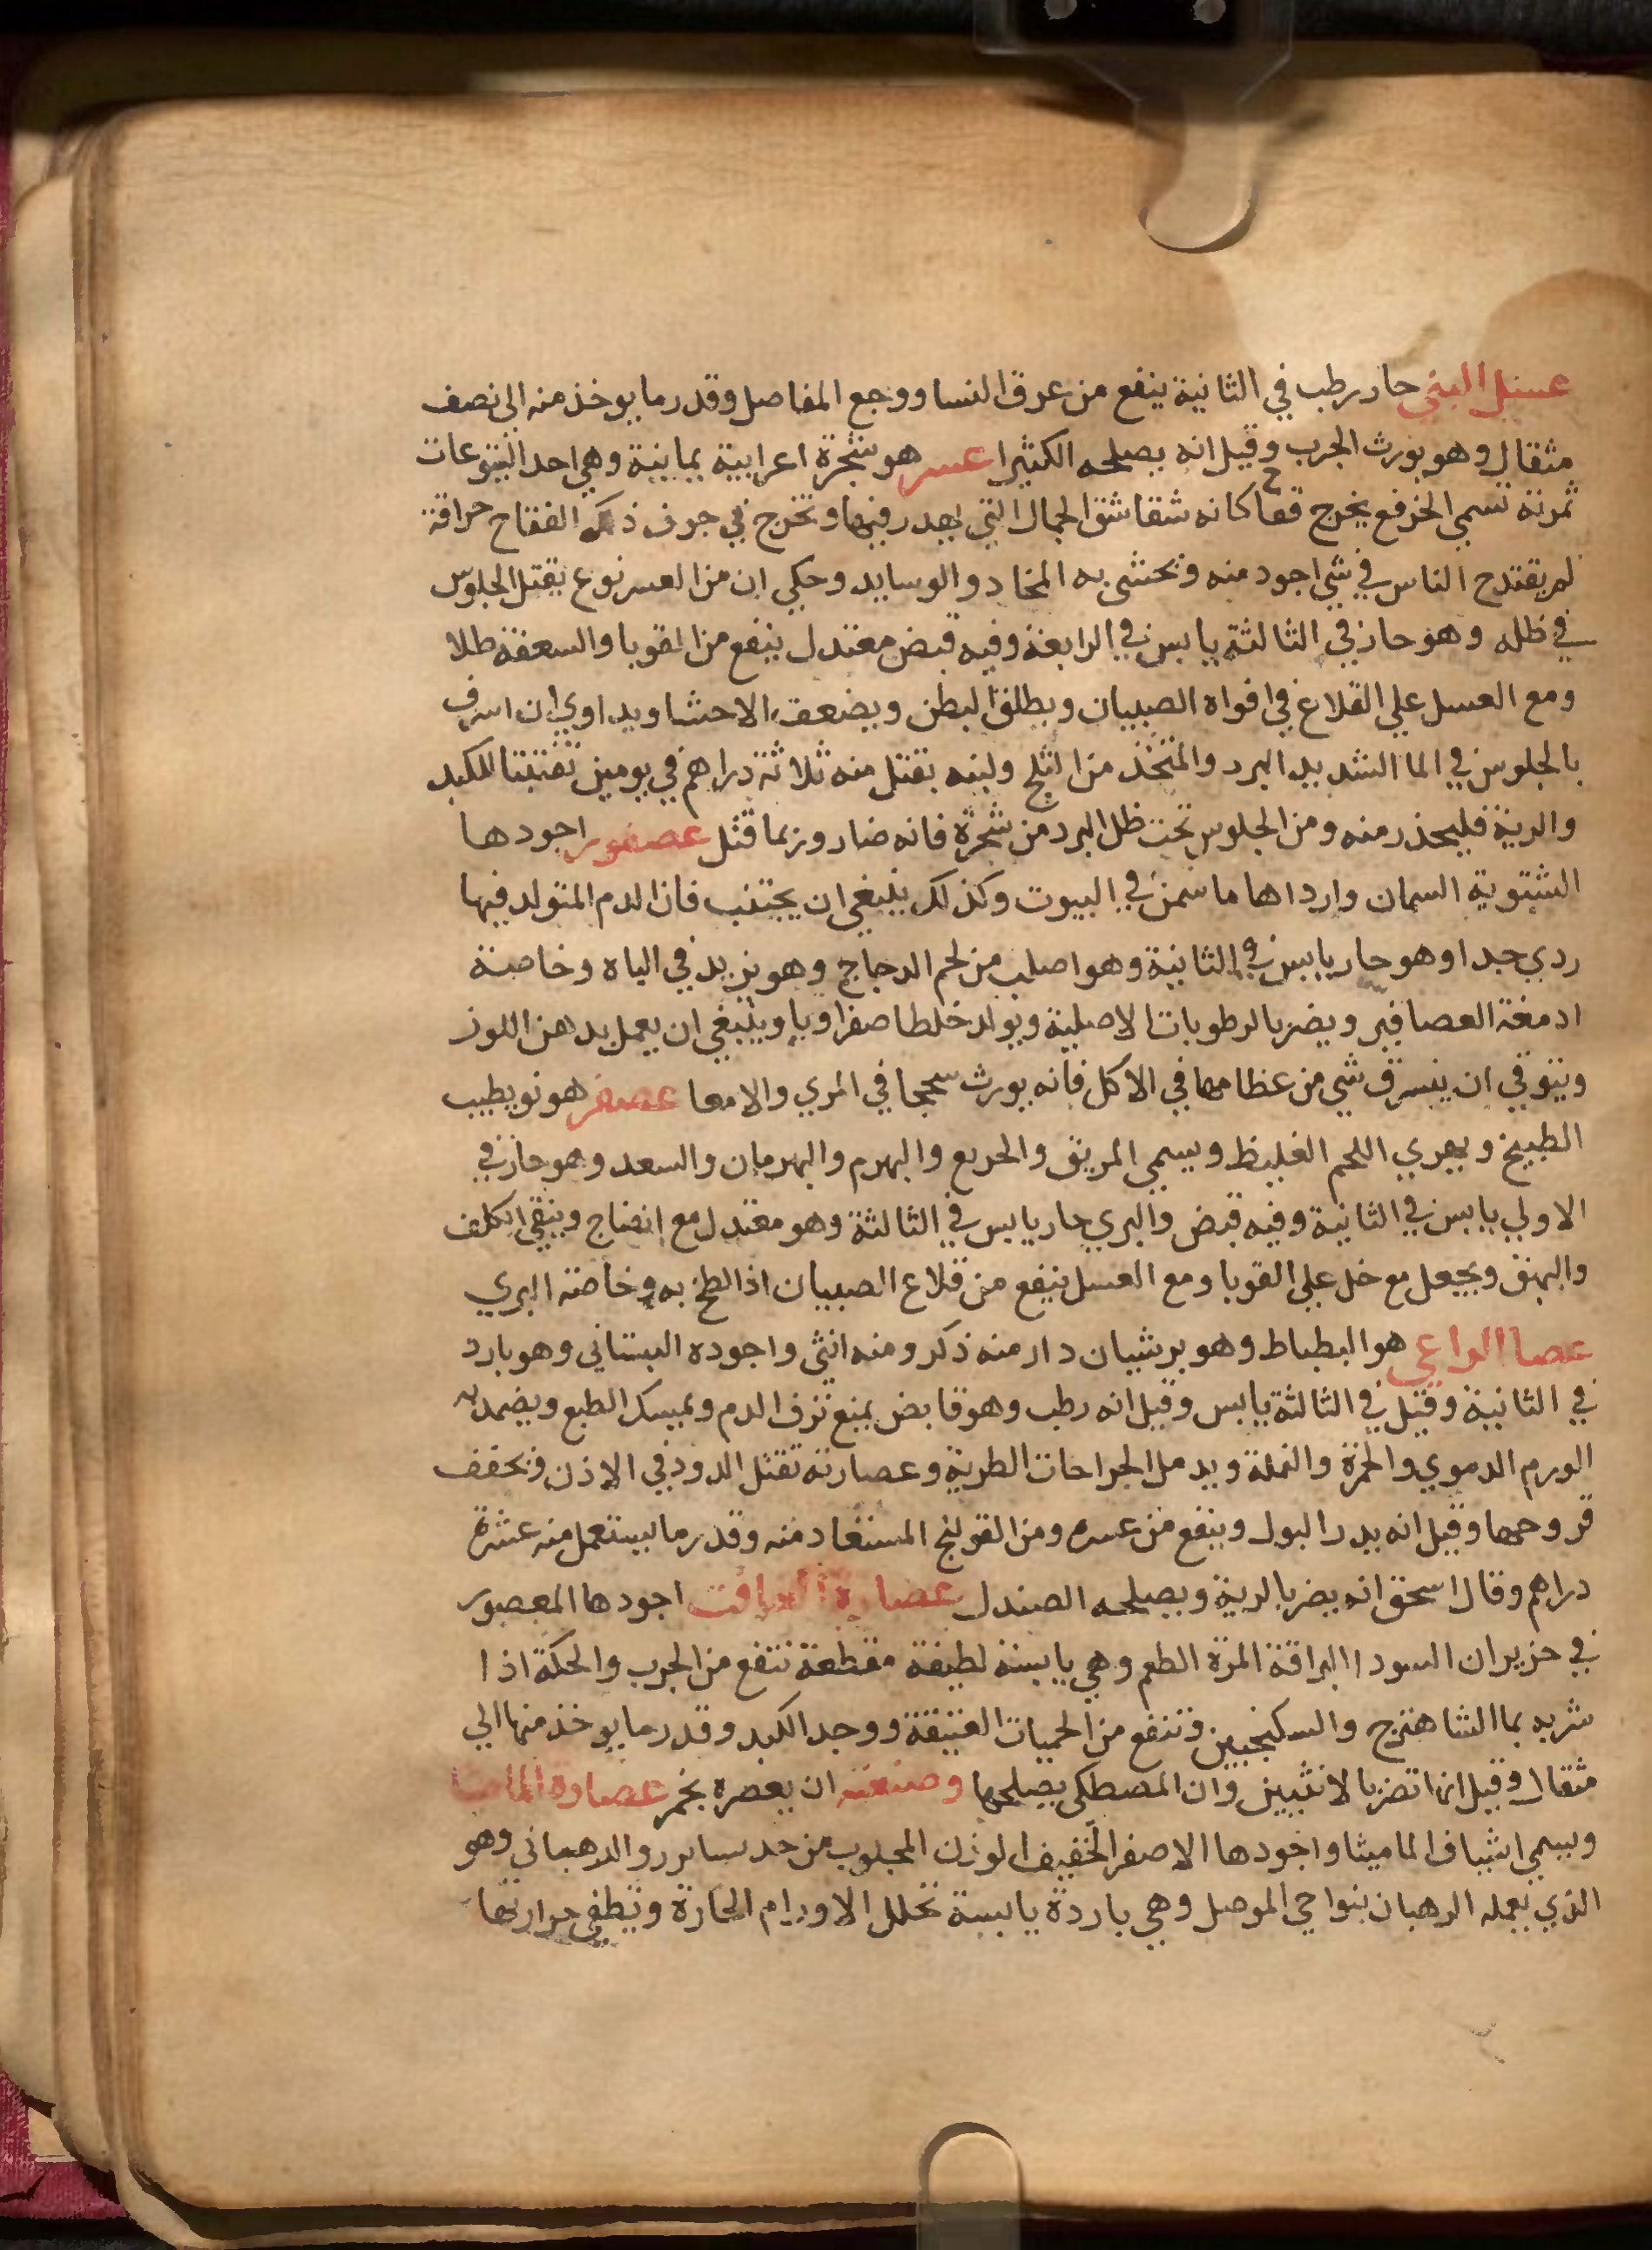 عسل البني حار رطب في الثانية ينفع من عرق النسا ووجع المفاصل وقدر ما يوخذ منه الي نصف
مثقال وهو يورث الجرب وقيل انه يصلحه الكثيرا عسر هو شجرة اعرابية يمانية وهي احد اليتوعات
ثمرته تسمي الخرفع يخرج فقاحا كانه شقاشق الجمال التي يهدر فيها وتخرج في جوف ذلك الفقاح حراقة
لم يقتدح الناس في شي اجود منه وتحشى به المخاد والوسايد وحكي ان من العسر نوع يقتل الجلوس
في ظله وهو حار في الثالثة يابس في الرابعة وفيه قبض معتدل ينفع من القوبا والسعفة طلا
ومع العسل علي القلاع في افواه الصبيان ويطلق البطن ويضعف الاحشا ويداوي ان اسرف
بالجلوس في الما الشديد البرد والمتخذ من الثلج ولبنه يقتل منه ثلاثة دراهم في يومين تفتيتا للكبد
والرية فليحذر منه ومن الجلوس تحت ظل البرد من شجرة فانه ضار وربما قتل عصفور اجودها
الشتوية السمان وارداها ما سمن في البيوت وكذلك ينبغي ان يجتنب فان الدم المتولد فيها
ردي جدا وهو حار يابس في الثانية وهو اصلب من لحم الدجاج وهو يزيد في الباه وخاصة
ادمغة العصافير ويضر بالرطوبات الاصلية ويولد خلطا صفراويا وينبغي ان يعمل بدهن اللوز
ويتوقي ان ينسرق شي من عظامها في الاكل فانه يورث سحجا في المري والامعا عصفر هو نويطيب
الطبيخ ويهري اللحم الغليظ ويسمي المريق والخريع والبهرم والبهرمان والسعد وهو حار في
الاولي يابس في الثانية وفيه قبض والبري حار يابس في الثالثة وهو معتدل مع انضاج وينقي الكلف
والبهق ويجعل مع خل علي القوبا ومع العسل ينفع من قلاع الصبيان اذا لطخ به وخاصته البري
عصا الراعي هو البطباط وهو برشبان دار منه ذكر ومنه انثي واجوده البستاني وهو بارد
في الثانية وقيل في الثالثة يابس وقيل انه رطب وهو قابض يمنع نزف الدم ويمسك الطبع ويضمد به
الورم الدموي والحمرة والنملة ويدمل الجراحات الطرية وعصارته تقتل الدود في الاذن وتجفف
قروحها وقيل انه يدر البول وينفع من عسره ومن القولنج المستعاد منه وقدر ما يستعمل منه عشرة
دراهم وقال اسحق انه يضر بالرية ويصلحه الصندل عصارة الغافت اجودها المعصور
في حزيران السودا البراقة المرة الطعم وهي يابسة لطيفة مقطعة تنفع من الجرب والحكة اذا
شربه بما الشاهترج والسكنجبين وتنفع من الحميات العتيقة ووجع الكبد وقدر ما يوخذ منها الي
مثقال وقيل انها تضر بالانثيين وان المصطكي يصلحها وصنعته ان يعصره بخمر عصارة الماميثا
ويسمي اشياف الماميثا واجودها الاصفر الخفيف الوزن المجلوب من جد سابور والرهباني وهو
الذي يعمله الرهبان بنواحي الموصل وهي باردة يابسة تحلل الاورام الحارة وتطفي حرارتها